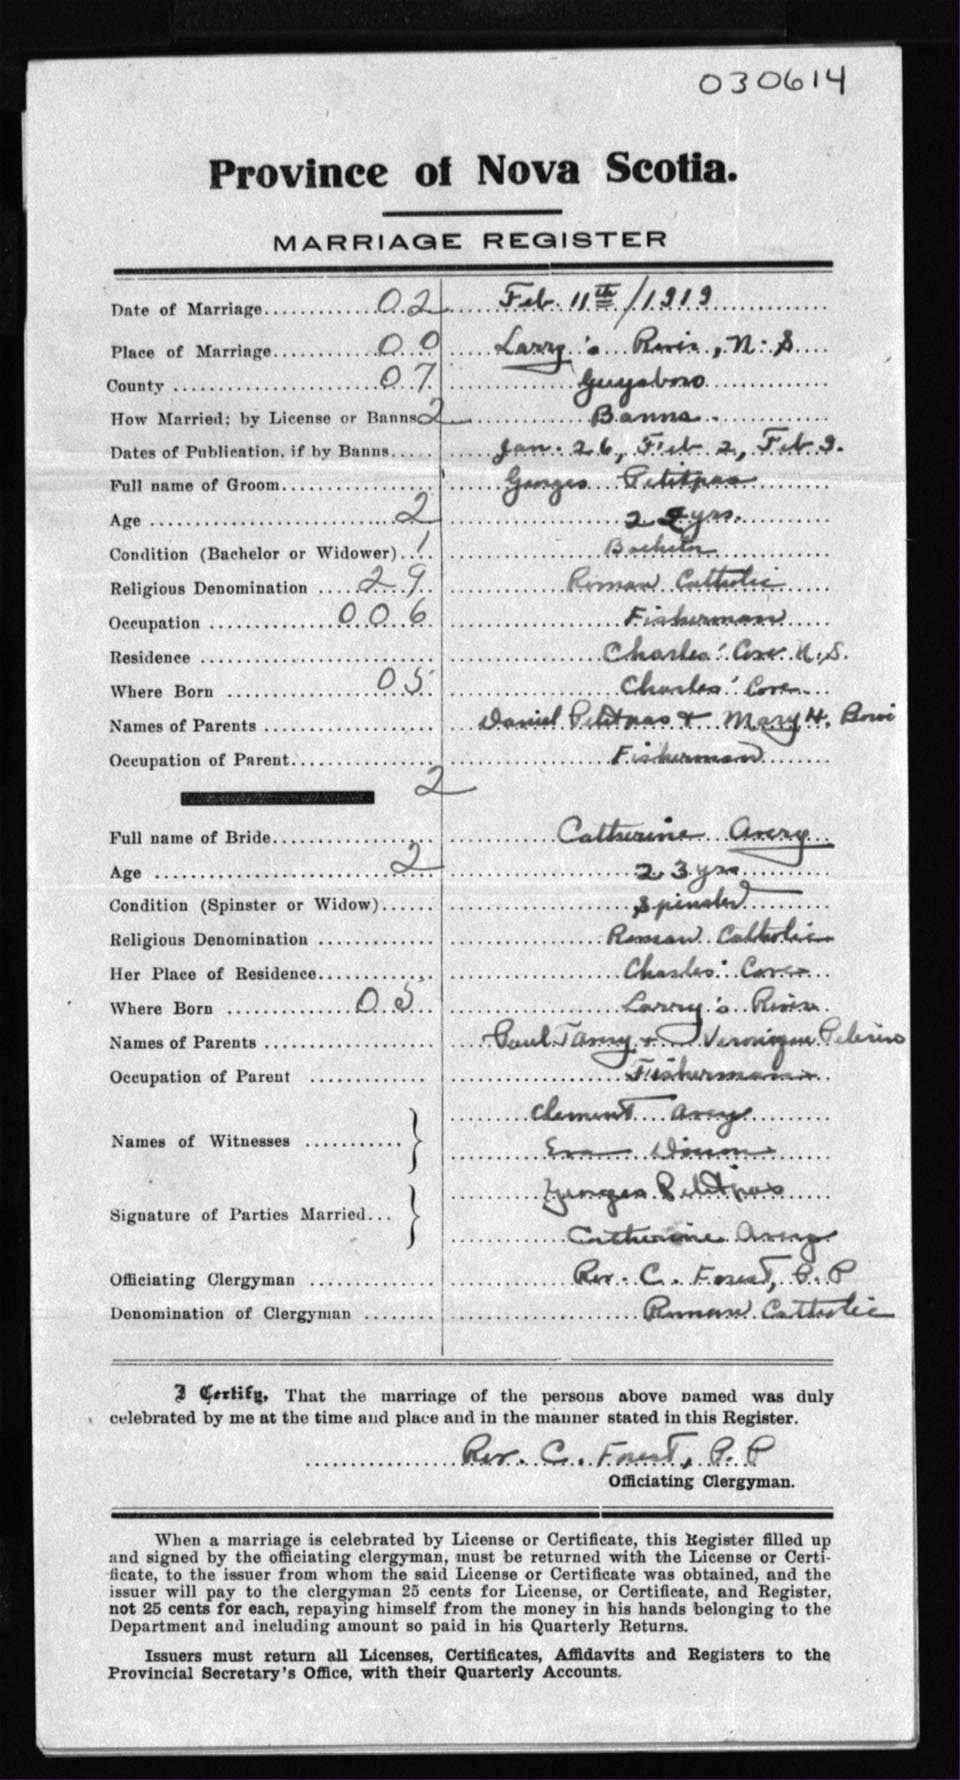 030614
Province of Nova Scotia.
MARRIAGE REGISTER
Date of Marriage 02 Feb. 11th/1919
Place of Marriage 00 Larry's River, N.S
County 07 Guysboro
How Married; by License or Banns 2 Banns
Dates of Publication, if by Banns Jan. 26, Feb 2, Feb 9.
Full name of Groom Georges Petitpas
Age 2 yrs.
Condition (Bachelor or Widower) 1 Bachelor
Religious Denomination 29 Roman Catholic
Occupation 006 Fisherman
Residence Charles' Cove N.S.
Where Born 05 Charles' Cove
Names of Parents Daniel Petitpas + Mary H.
Occupation of Parent Fisherman
2
Full name of Bride Catherine Avery
Age 2 23 yrs
Condition (Spinster or Widow) Spinster
Religious Denomination Roman Catholic
Her Place of Residence Charles' Cove
Where Born 05 Larry's River
Names of Parents Paul T Avery + Veronique Pelerine
Occupation of Parent Fisherman
Names of Witnesses Clement Avery
Eva
Signature of Parties Married Georges Petitpas
Catherine Avery
Officiating Clergyman Rev. C. Forest, P.P
Denomination of Clergyman Roman Catholic
I Certify, That the marriage of the persons above named was duly
celebrated by me at the time and place and in the manner stated in this Register.
Rev. C. Forest, P.P
Officiating Clergyman.
When a marriage is celebrated by License or Certificate, this Register filled up
and signed by the officiating clergyman, must be returned with the License or Certi-
ficate, to the issuer from whom the said License or Certificate was obtained, and the
issuer will pay to the clergyman 25 cents for License, or Certificate, and Register,
not 25 cents for each, repaying himself from the money in his hands belonging to the
Department and including amount so paid in his Quarterly Returns.
Issuers must return all Licenses, Certificates, Affidavits and Registers to the
Provincial Secretary's Office, with their Quarterly Accounts.